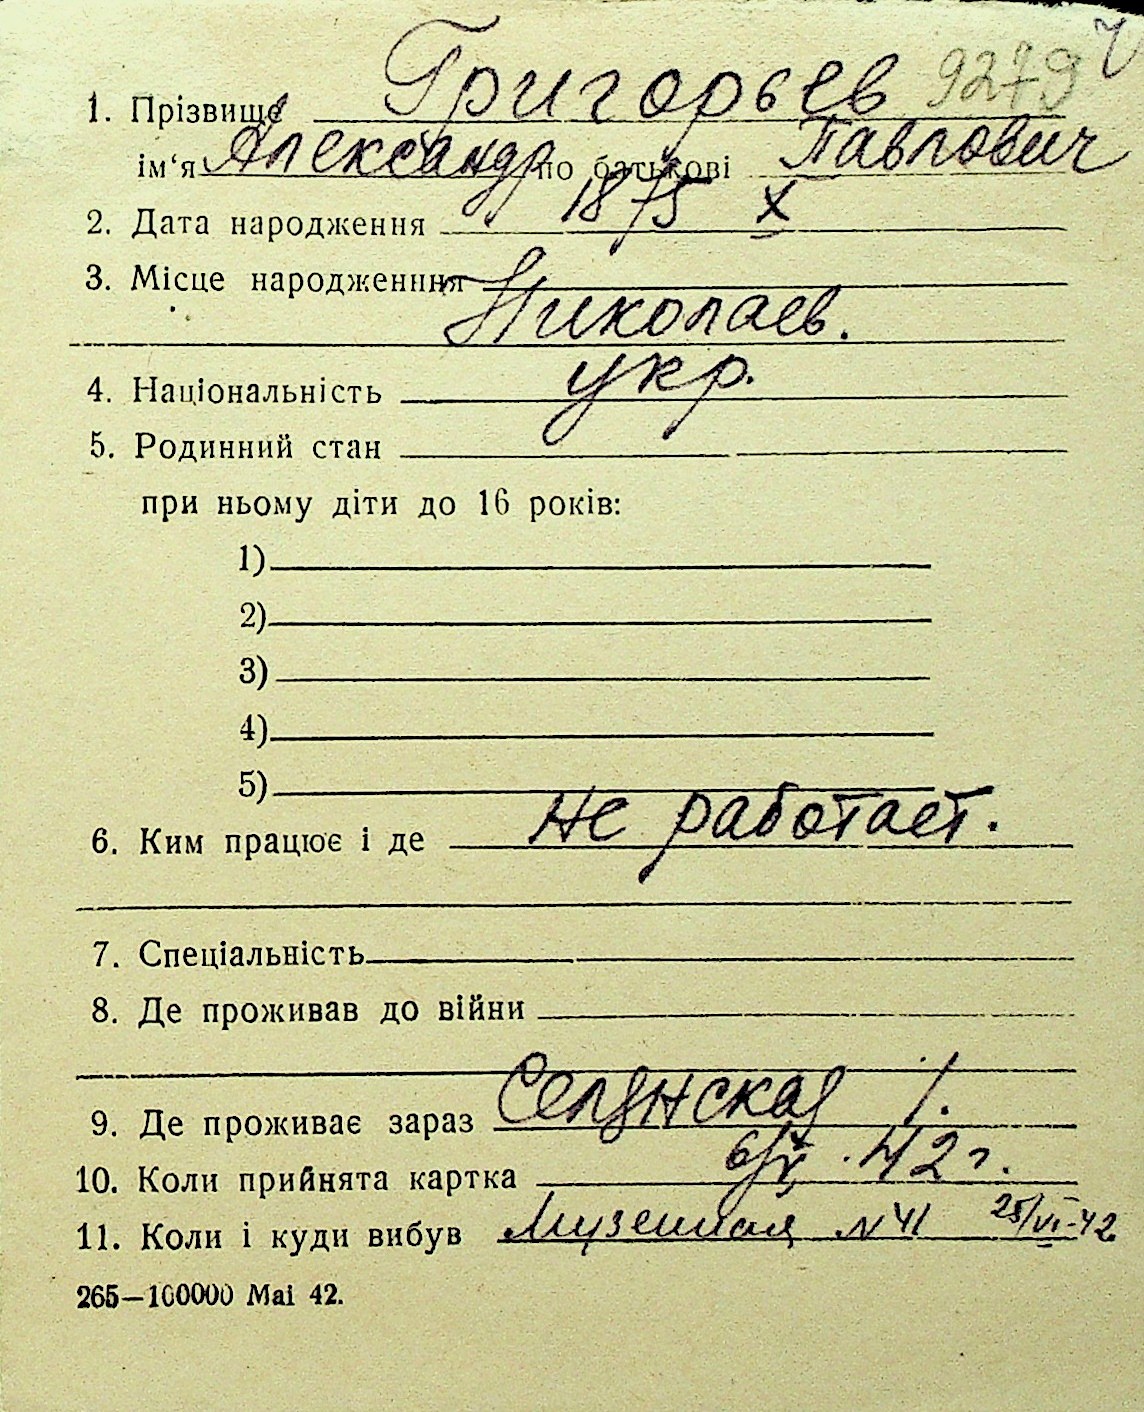 9279
1. Прізвище Григорьев
ім‘я Александр по батькові Павлович
2. Дата народження 1875 X
3. Місце народженння
Николаев.
4. Національність укр.
5. Родинний стан
при ньому діти до 16 років:
1)
2)
3)
4)
5)
6. Ким працює і де Не работает.
7. Спеціальність
8. Де проживав до війни
9. Де проживає зараз 1.
10. Коли прийнята картка 42 г.
11. Коли і куди вибув Музейная N 41 25/VI-42
265—100000 Mai 42.